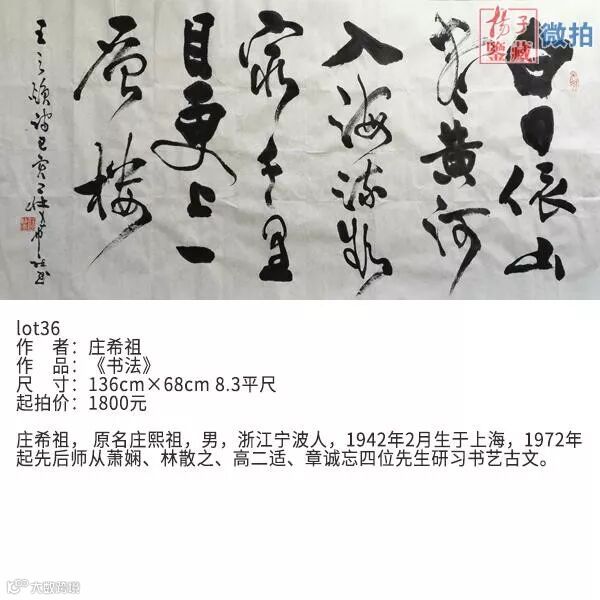 揚子
鑒藏
微拍
白日依山
尽黄河
入海流欲
窮千里
目更上一
层楼
王之涣诗
lot36
作 者：庄希祖
作 品：《书法》
尺 寸：136cm×68cm 8.3平尺
起拍价：1800元
庄希祖， 原名庄熙祖，男，浙江宁波人，1942年2月生于上海，1972年
起先后师从萧娴、林散之、高二适、章诚忘四位先生研习书艺古文。
大数跨境